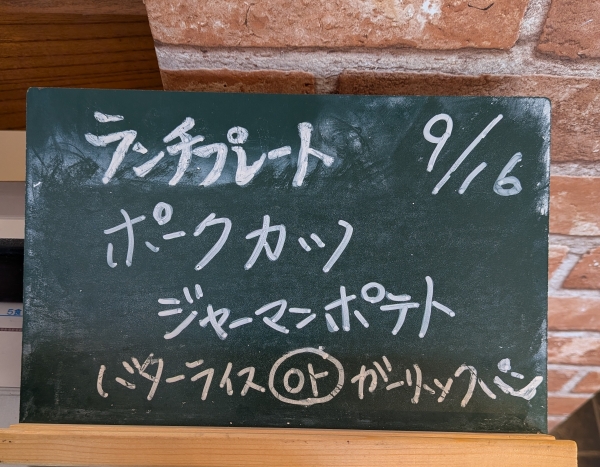 ランチプレート 9/16
ポークカツ
ジャーマンポテト
バターライス or ガーリックパン